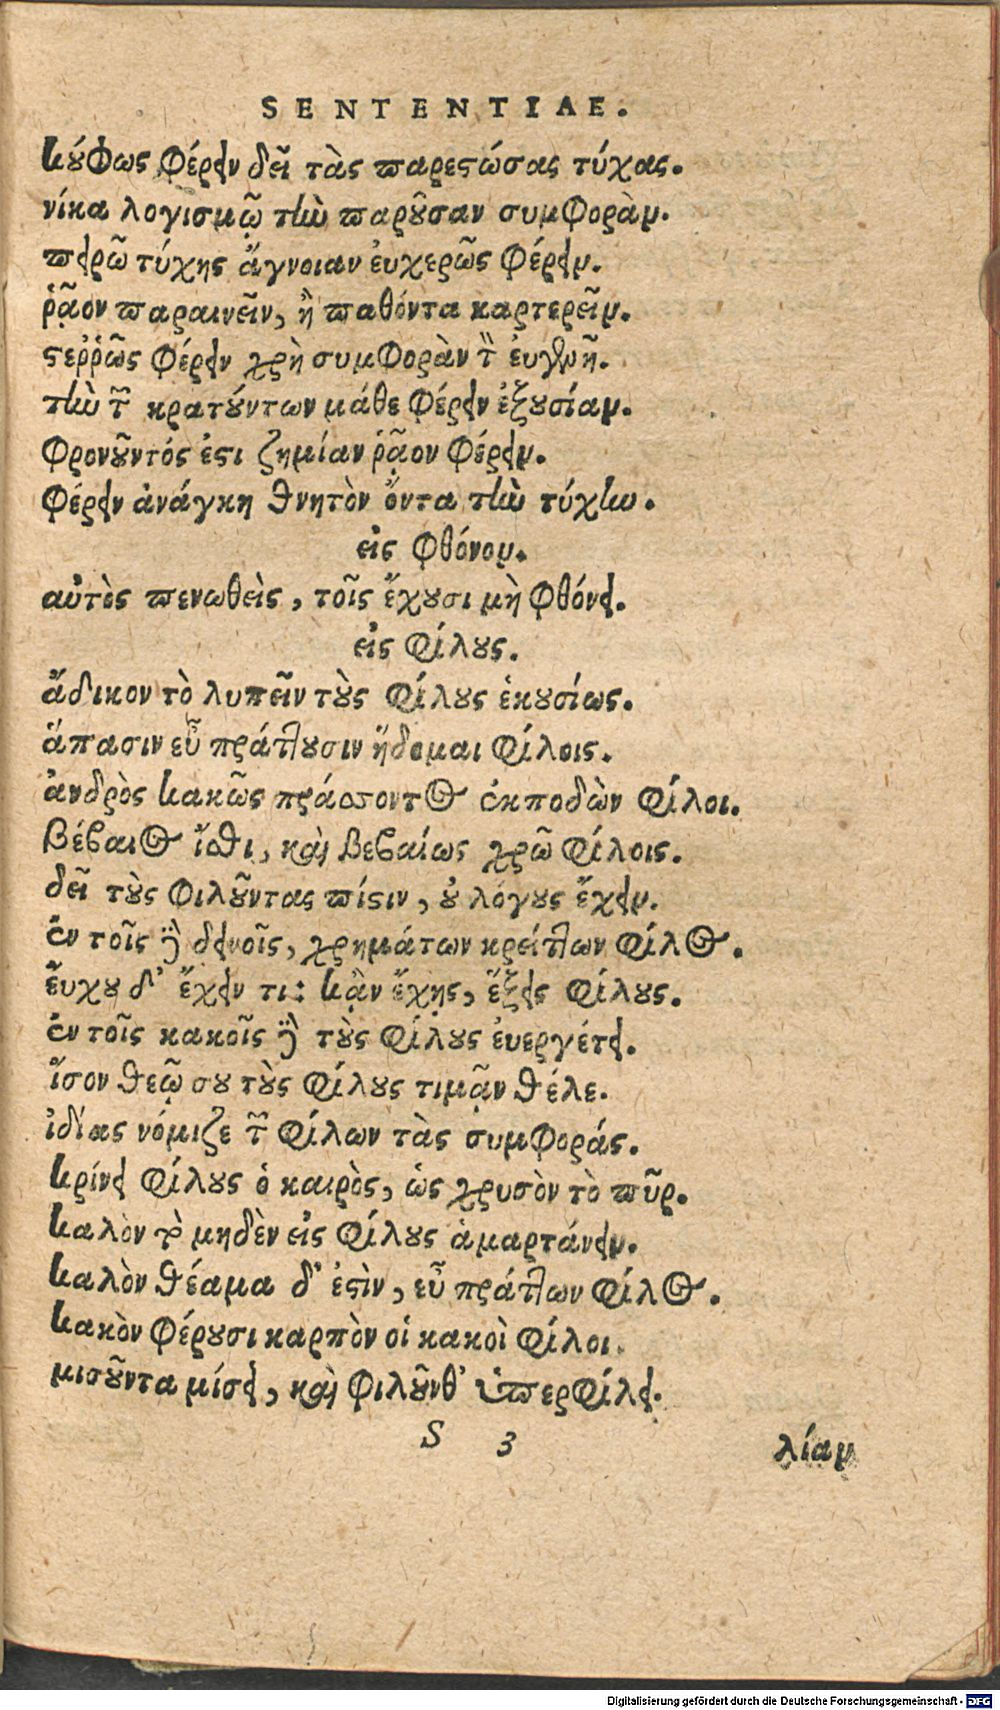 SENTENTIAE.
κύφως φέρειν δεῖ τὰς παρεστώσας τύχας.
νίκα λογισμῷ τὴν παροῦσαν συμφορὰν.
πειρῶ τύχης ἄγνοιαν ἐυχερῶς φέρειν.
ῥᾷον παραινεῖν, ἢ παθόντα καρτερεῖν.
στεῤῥῶς φέρειν χρὴ συμφορὰν τὸν ἐυγενῆ.
τὴν τῶν κρατούντων μάθε φέρειν ἐξουσίαν.
φρονοῦντός ἐστι ζημίαν ῥᾷον φέρειν.
φέρειν ἀνάγκη θνητὸν ὄντα τὴν τύχην.
εἰς φθόνον.
αὐτὸς πενωθεὶς, τοῖς ἔχουσι μὴ φθόνει.
εἰς φίλους.
ἄδικον τὸ λυπεῖν τοὺς φίλους ἑκουσίως.
ἅπασιν εὖ πράττουσιν ἥδομαι φίλοις.
ἀνδρὸς κακῶς πράσσοντος ἐκποδὼν φίλοι.
βέβαιος ἴσθι, καὶ βεβαίως χρῶ φίλοις.
δεῖ τοὺς φιλοῦντας πίστιν, οὐ λόγους ἔχειν.
ἐν τοῖς δὲ δεινοῖς, χρημάτων κρείττων φίλος.
ἔυχου δ' ἔχειν τι: κᾂν ἔχῃς, ἕξεις φίλους.
ἐν τοῖς κακοῖς δὲ τοὺς φίλους ἐυεργέτει.
ἴσον θεῷ σου τοὺς φίλους τιμᾷν θέλε.
ἰδίας νόμιζε τῶν φίλων τὰς συμφοράς.
κρίνει φίλους ὁ καιρὸς, ὡς χρυσὸν τὸ πῦρ.
καλὸν τὸ μηδὲν εἰς φίλους ἁμαρτάνειν.
καλὸν θέαμα δ' ἐστὶν, εὖ πράττων φίλος.
κακὸν φέρουσι καρπὸν οἱ κακοὶ φίλοι.
μισοῦντα μίσει, καὶ φιλοῦνθ' ὑπερφίλει.
S 3
λίαν
Digitalisierung gefördert durch die Deutsche Forschungsgemeinschaft - DFG